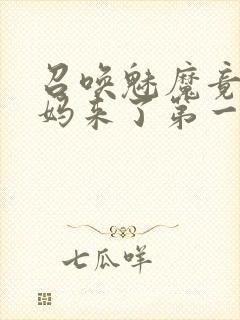 召唤魅魔竟
妈来了第一
七瓜咩